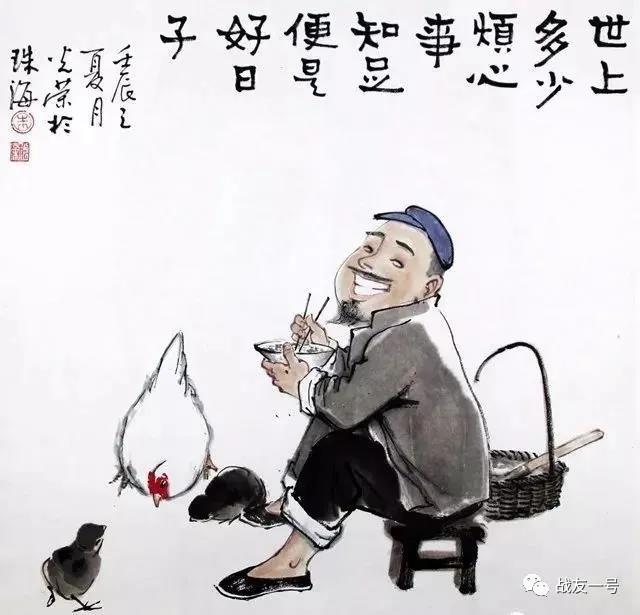 世上
多少
煩心
事
知足
便是
好日
子
壬辰之
夏月
光荣於
珠海
战友一号